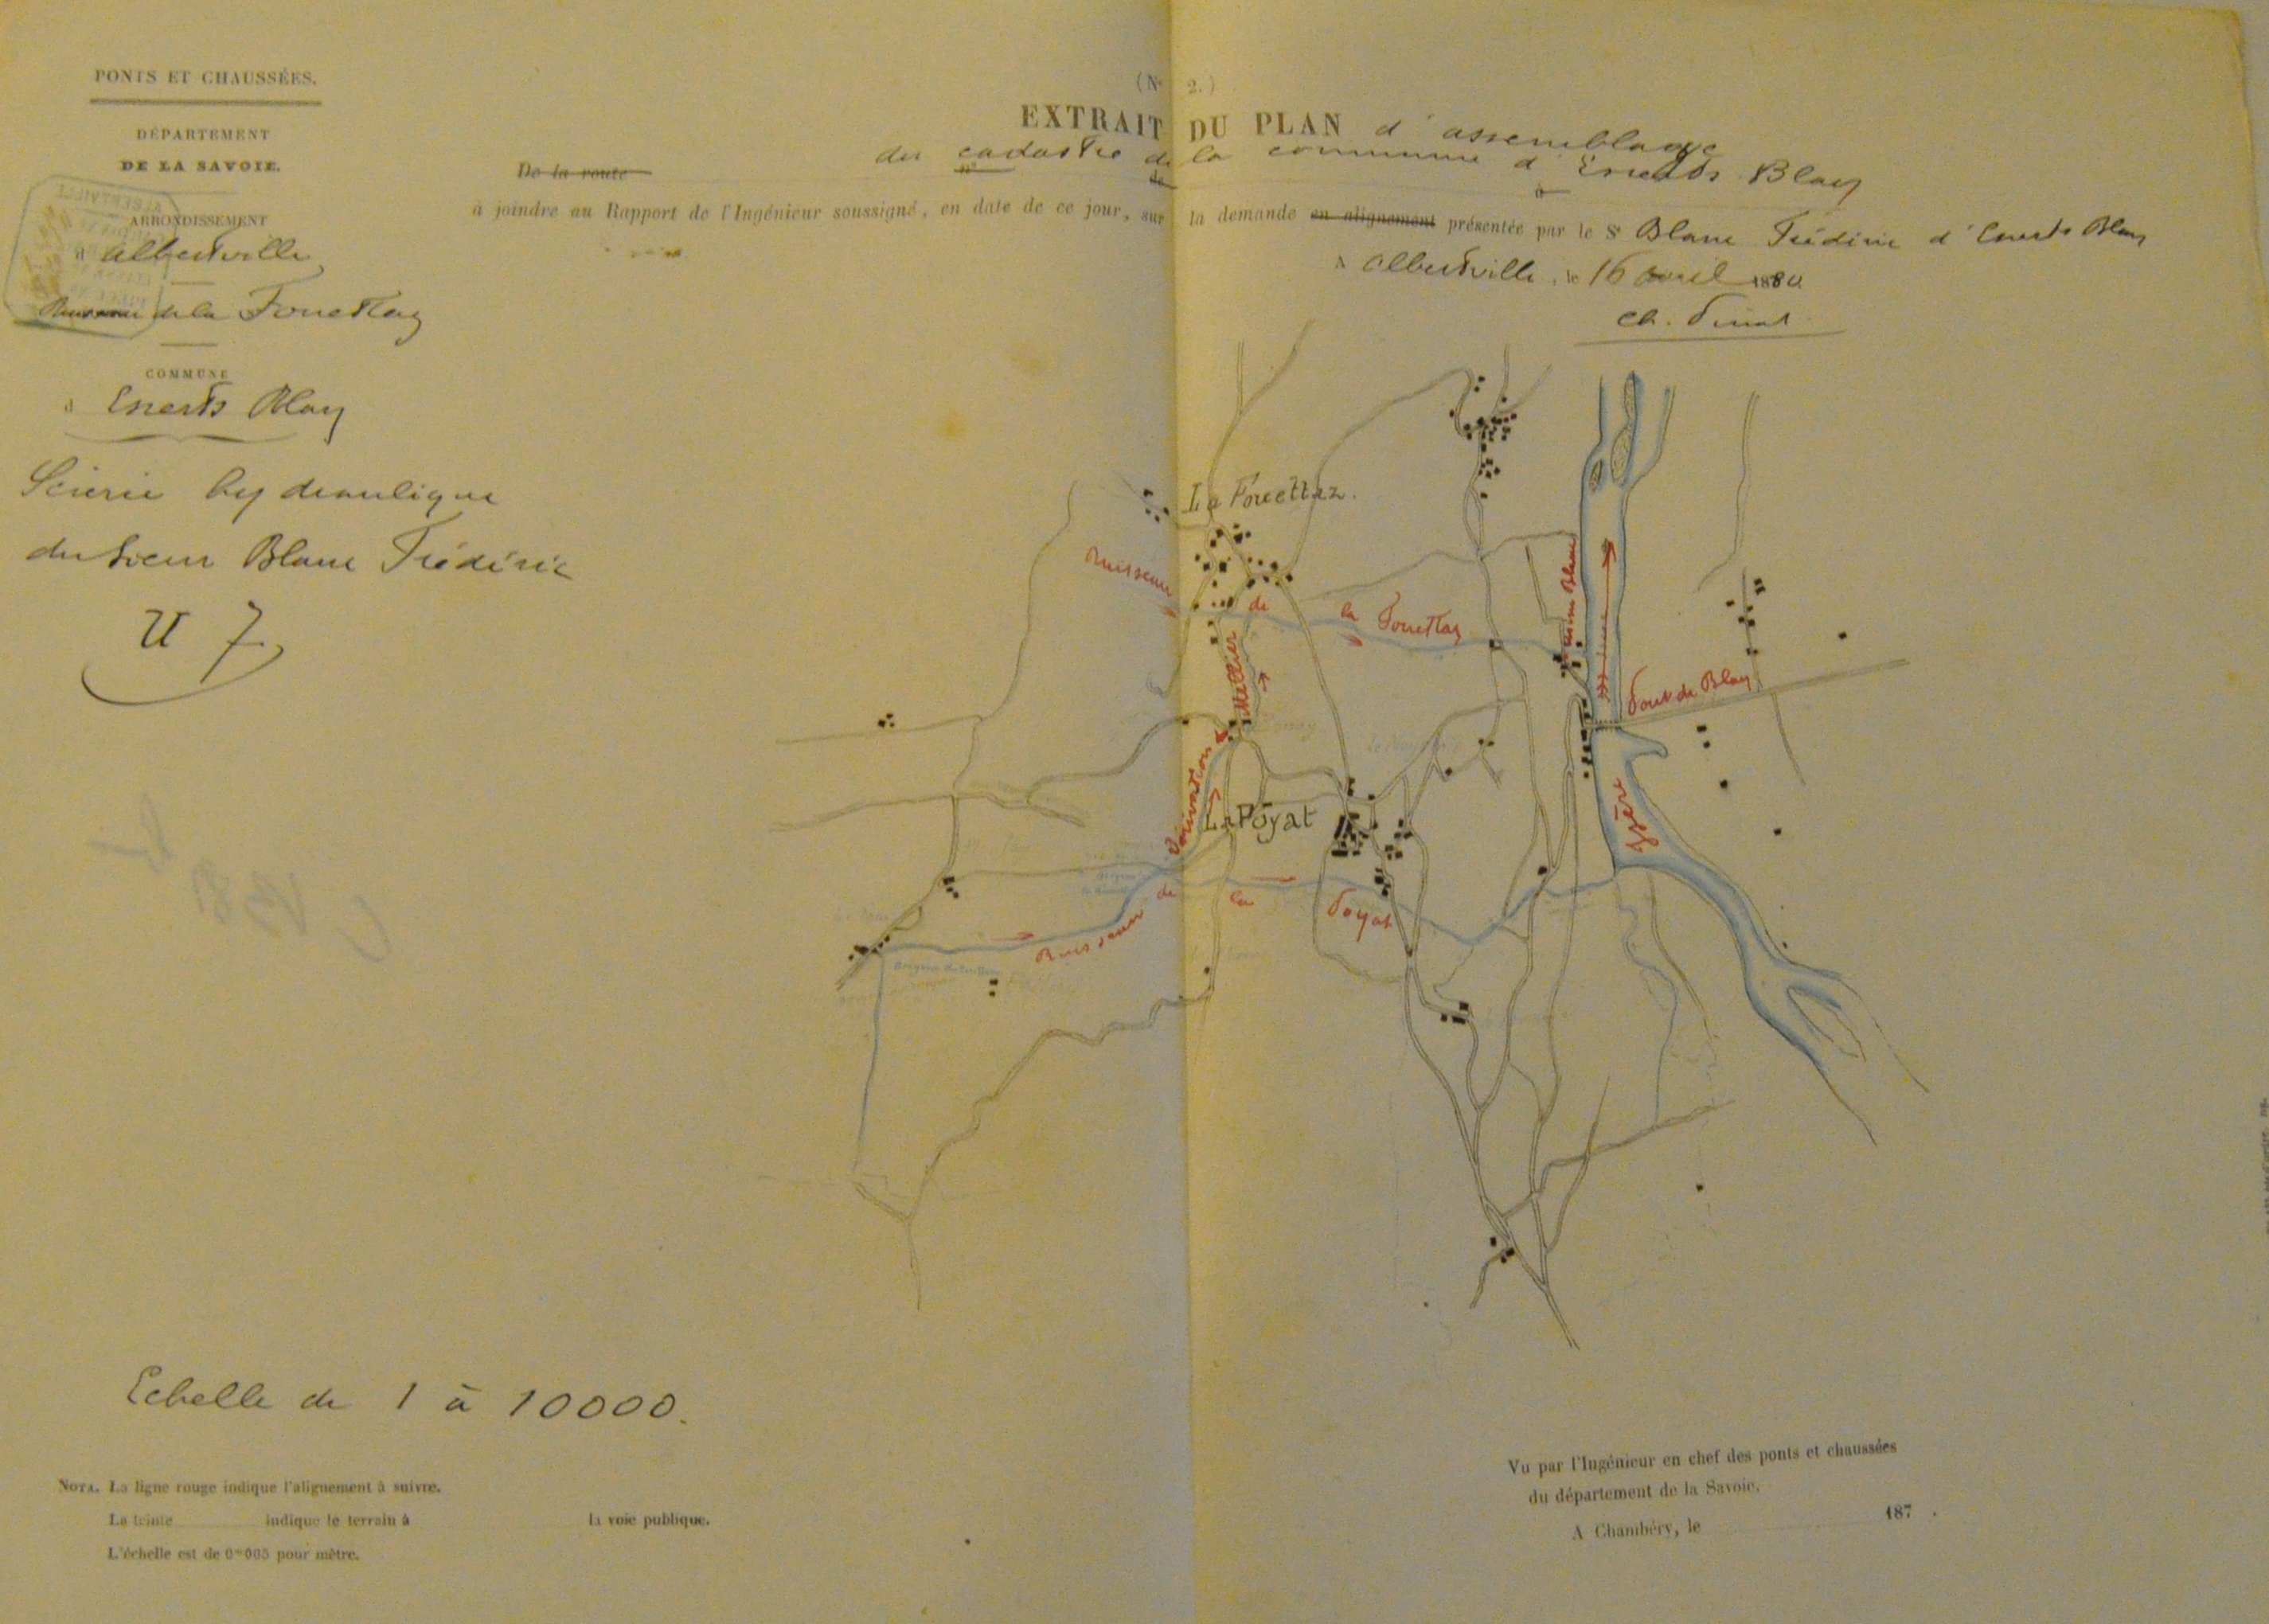 PONTS ET CHAUSSÉES.
DÉPARTEMENT
DE LA SAVOIE.
ARRONDISSEMENT
d'Albertville
Ruisseau de la Fouettaz
COMMUNE
d'Esserts Blay
Scierie hydraulique
du Sieur Blanc Frédéric
U 7
(N° 2.)
EXTRAIT DU PLAN d'assemblage
De la route n° du cadastre de la commune d'Esserts Blay
à joindre au Rapport de l'Ingénieur soussigné, en date de ce jour, sur la demande en alignement présentée par le Sr Blanc Frédéric d'Esserts Blay
A Albertville, le 16 avril 1880
La Fouettaz.
Ruisseau de la Fouettaz
Usine Blanc
Mellier
Pont de Blay
Dérivation
La Poyat
Isère
Ruisseau de la Poyat
Echelle de 1 à 10000.
NOTA. La ligne rouge indique l'alignement à suivre.
La teinte indique le terrain à la voie publique.
L'échelle est de 0m005 pour mètre.
Vu par l'Ingénieur en chef des ponts et chaussées
du département de la Savoie.
A Chambéry, le 187 .